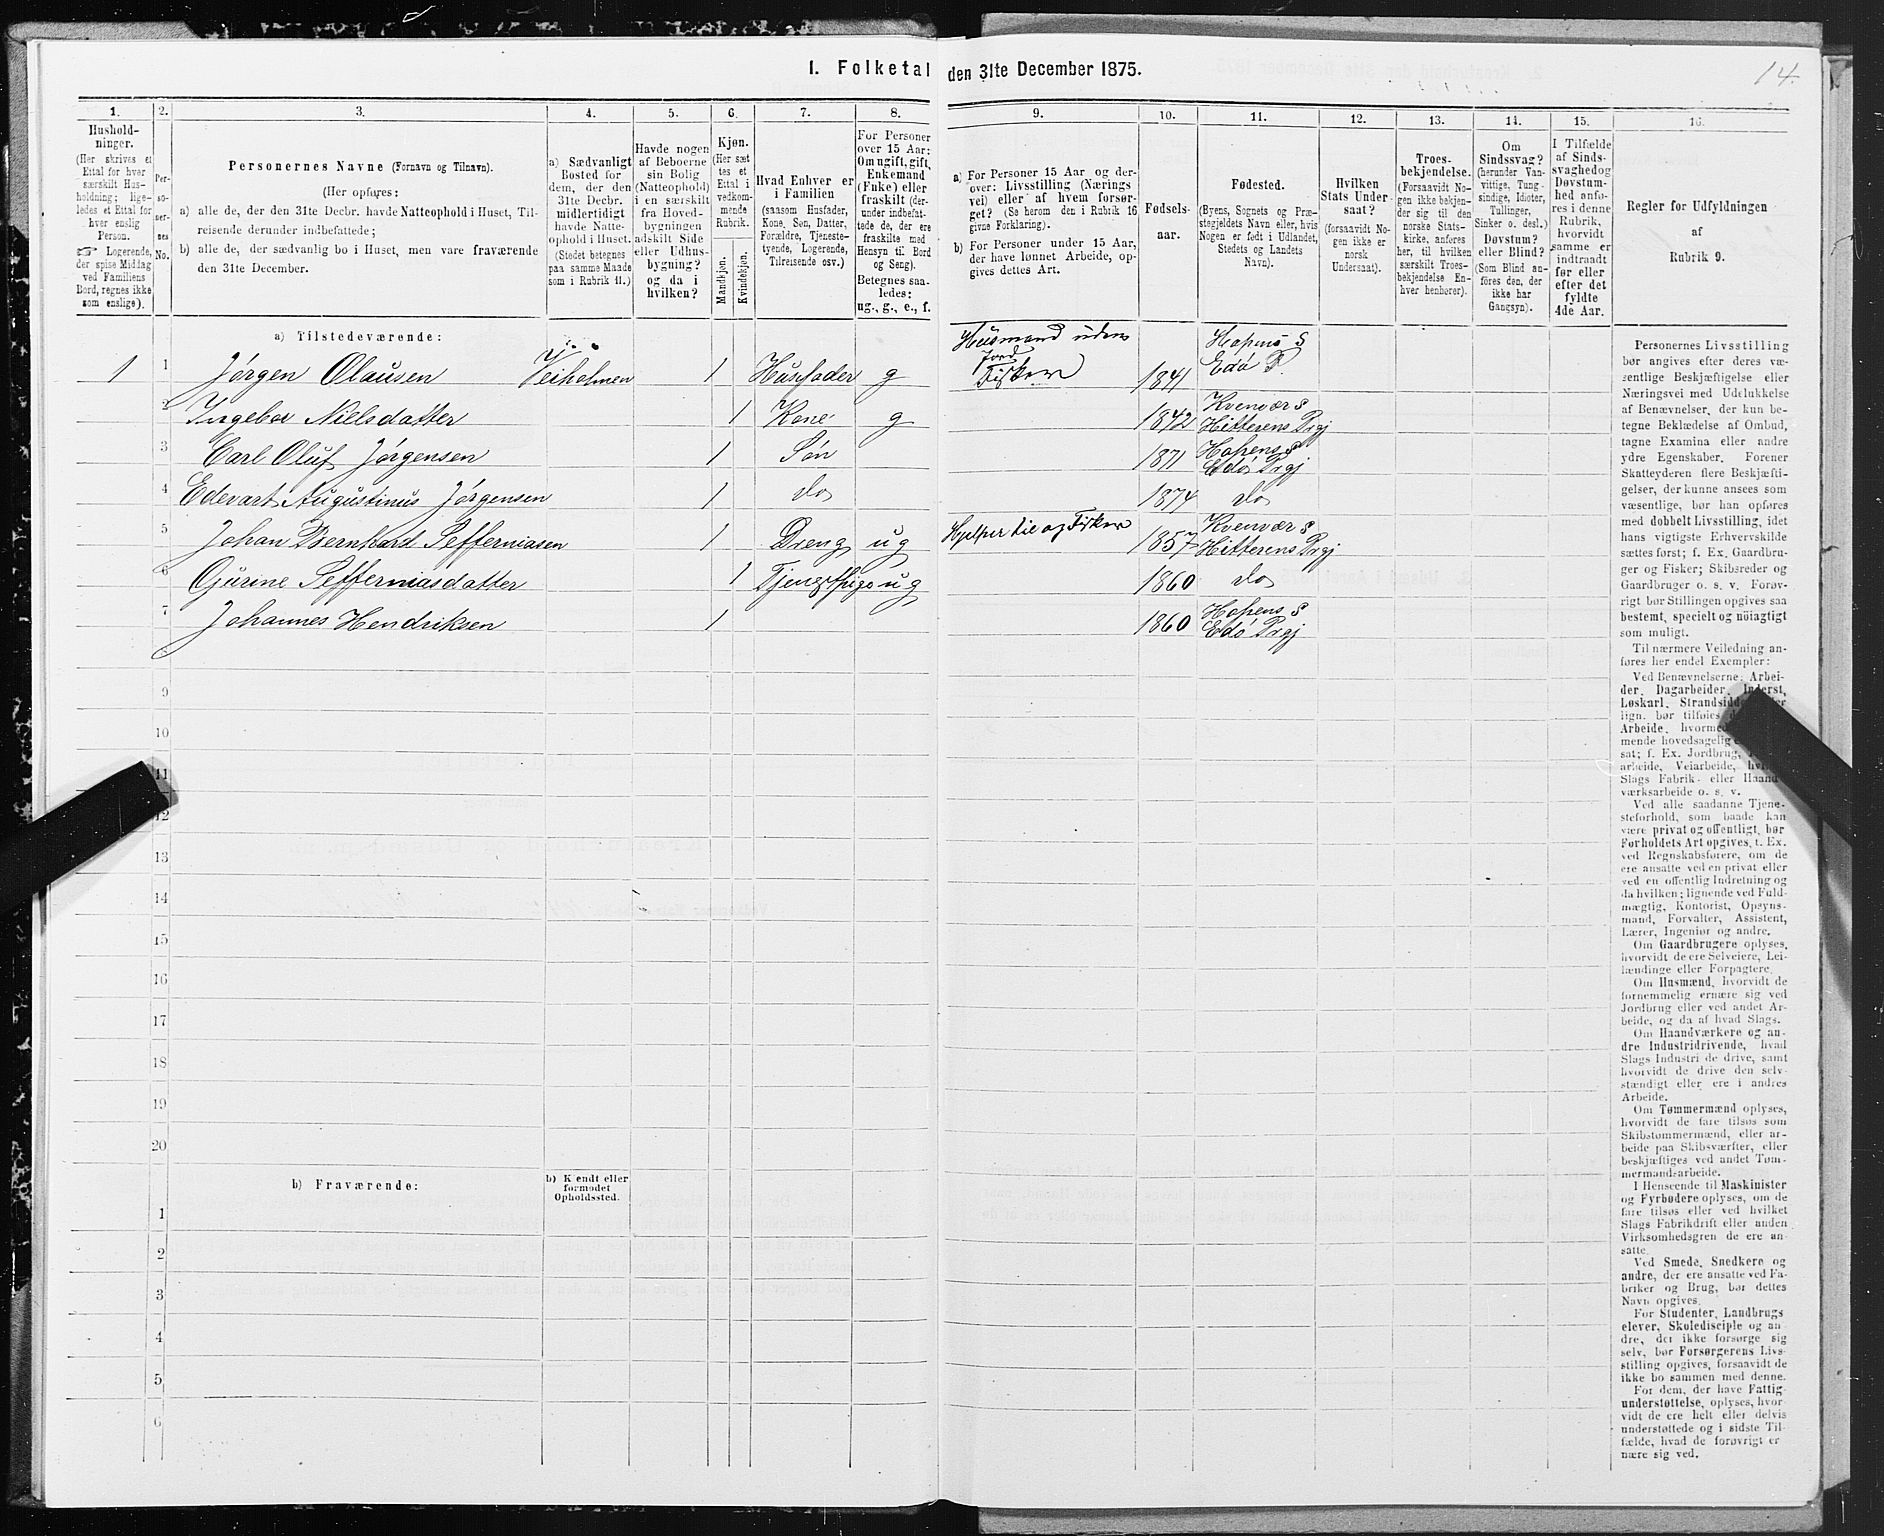 1. Folketal den 31te December 1875.
14.
1.
Hushold-
ninger.
(Her skrives et
Ettal for hver
særskilt Hus-
holdning; lige-
ledes et Ettal for
hver enslig
Person.
☞ Logerende,
der spise Middag
ved Familiens
Bord, regnes ikke
som enslige).
2.
Per-
so-
ner-
nes
No.
3.
Personernes Navne (Fornavn og Tilnavn).
(Her opføres:
a) alle de, der den 31te Decbr. havde Natteophold i Huset, Til-
reisende derunder indbefattede;
b) alle de, der sædvanlig bo i Huset, men vare fraværende
den 31te December.
4.
a) Sædvanligt
Bosted for
dem, der den
31te Decbr.
midlertidigt
havde Natte-
ophold i Huset.
(Stedet betegnes
paa samme Maade
som i Rubrik 11.)
5.
Havde nogen
af Beboerne
sin Bolig
(Natteophold)
i en særskilt
fra Hoved-
bygningen
adskilt Side-
eller Udhus-
bygning?
og da i
hvilken?
6.
Kjøn.
(Her sæt-
tes et
Ettal i
vedkom-
mende
Rubrik.
Mandkjøn.
Kvindekjøn.
7.
Hvad Enhver er
i Familien
(saasom Husfader,
Kone, Søn, Datter,
Forældre, Tjeneste-
tyende, Logerende,
Tilreisende osv.)
8.
For Personer
over 15 Aar:
Om ugift, gift,
Enkemand
(Enke) eller
fraskilt (der-
under indbefat-
tede de, der ere
fraskilte med
Hensyn til Bord
og Seng).
Betegnes saa-
ledes:
ug., g., e., f.
9.
a) For Personer 15 Aar og der-
over: Livsstilling (Nærings-
vei) eller af hvem forsør-
get? (Se herom den i Rubrik 16
givne Forklaring).
b) For Personer under 15 Aar,
der have lønnet Arbeide, op-
gives dettes Art.
10.
Fødsels-
aar.
11.
Fødested.
(Byens, Sognets og Præ-
stegjeldets Navn eller, hvis
Nogen er født i Udlandet,
Stedets og Landets
Navn).
12.
Hvilken
Stats Under-
saat?
(forsaavidt No-
gen ikke er
norsk
Undersaat).
13.
Troes-
bekjendelse.
(Forsaavidt No-
gen ikke bekjen-
der sig til den
norske Stats-
kirke, anføres
her, til hvilken
særskilt Troes-
bekjendelse En-
hver henhører).
14.
Om
Sindssvag?
(herunder Van-
vittige, Tung-
sindige, Idioter,
Tullinger,
Sinker o. desl.)
Døvstum?
eller Blind?
(Som Blind an-
føres den, der
ikke har
Gangsyn).
15.
I Tilfælde
af Sinds-
svaghed og
Døvstum-
hed anfø-
res i denne
Rubrik,
hvorvidt
samme er
indtraadt
før eller
efter det
fyldte
4de Aar.
16.
Regler for Udfyldningen
af
Rubrik 9.
a) Tilstedeværende:
1 1 Jørgen Olausen Veiholmen 1 Husfader g Husmand uden Jord Fisker 1841 Hopens S Edø P.
2 Ingebor Nielsdatter 1 Kone g 1842 Kvenvær S Hitterens Prgj
3 Carl Oluf Jørgensen 1 Søn 1871 Hopens S Edø Prgj
4 Edevart Augustinus Jørgensen 1 do 1874 do
5 Johan Bernhard Sefferniasen 1 Dreng ug Hjelper til og Fisker 1857 Kvenvær S Hitterens Prgj
6 Gurine Sefferniasdatter 1 ug 1860 do
7 Johannes Hendriksen 1 1860 Hopens S Edø Prgj
8
9
10
11
12
13
14
15
16
17
18
19
20
b) Fraværende:
b) Kjendt eller
formodet
Opholdssted.
1
2
3
4
5
6
Personernes Livsstilling
bør angives efter deres væ-
sentlige Beskjæftigelse eller
Næringsvei med Udelukkelse
af Benævnelser, der kun be-
tegne Beklædelse af Ombud,
tagne Examina eller andre
ydre Egenskaber. Forener
Skatteyderen flere Beskjæfti-
gelser, der kunne ansees som
væsentlige, bør han opføres
med dobbelt Livsstilling, idet
hans vigtigste Erhvervskilde
sættes først; f. Ex. Gaardbru-
ger og Fisker; Skibsreder og
Gaardbruger o. s. v. Forøv-
rigt bør Stillingen opgives saa
bestemt, specielt og nöiagtigt
som muligt.
Til nærmere Veiledning an-
føres her endel Exempler:
Ved Benævnelserne: Arbei-
der, Dagarbeider, Inderst,
Løskarl, Strandsidder
lign. bør tilføies
Arbeide, hvormed
mende hovedsagelig
sat; f. Ex. Jordbrug,
arbeide, Veiarbeide,
Slags Fabrik- eller Haand-
værksarbeide o. s. v.
Ved alle saadanne Tjene-
steforhold, som baade kan
være privat og offentligt, bør
Forholdets Art opgives, f. Ex.
ved Regnskabsførere, om de
ere ansatte ved en privat eller
ved en offentlig Indretning og
da hvilken; lignende ved Fuld-
mægtig, Kontorist, Opsyns-
mand, Forvalter, Assistent,
Lærer, Ingeniør og andre.
Om Gaardbrugere oplyses,
hvorvidt de ere Selveiere, Lei-
lændinge eller Forpagtere.
Om Husmænd, hvorvidt de
fornemmelig ernære sig ved
Jordbrug eller ved andet Ar-
beide, og da af hvad Slags.
Om Haandværkere og an-
dre Industridrivende, hvad
Slags Industri de drive, samt
hvorvidt de drive den selv-
stændigt eller ere i andres
Arbeide.
Om Tømmermænd oplyses,
hvorvidt de fare tilsøs som
Skibstømmermænd, eller ar-
beide paa Skibsværfter, eller
beskjæftiges ved andet Tøm-
mermandsarbeide.
I Henseende til Maskinister
og Fyrbødere oplyses, om de
fare tilsøs eller ved hvilket
Slags Fabrikdrift eller anden
Virksomhedsgren de ere an-
satte.
Ved Smede, Snedkere og
andre, der ere ansatte ved Fa-
briker og Brug, bør dettes
Navn opgives.
For Studenter, Landbrugs-
elever, Skoledisciple og an-
dre, der ikke forsørge sig
selv, bør Forsørgerens Livs-
stilling opgives, forsaavidt de
ikke bo sammen med denne.
For dem, der have Fattig-
understøttelse, oplyses, hvor-
vidt de ere helt eller delvis
understøttede og i sidste Til-
fælde, hvad de forøvrigt er-
nære sig ved.